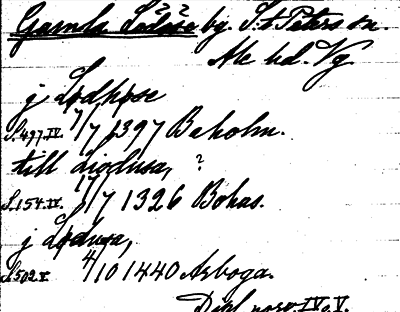 Gamla Lödöse by. S:t Peters sn.
Ale hd. Vg
j Lødhøse
S. 497. IV. 7/7 1397 Baholm.
till Liodusa, ?
S. 154. IV. 17/7 1326 Bohus.
j Lødusa,
S. 502 V 4/10 1440 Arboga.
Dipl. norv. IV o. V.